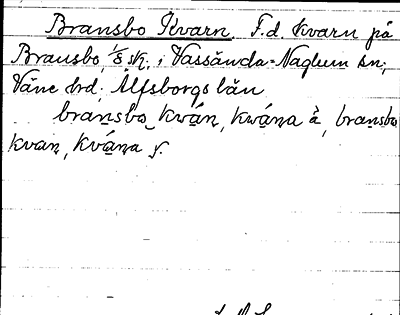 Bransbo Kvarn. F.d. kvarn på
Bransbo, 1/8 sk. i Vassända-Naglum sn;
Väne hd; Älfsborgs län
bransbo kván, kwána à, bransbo
kvan, kvána f.